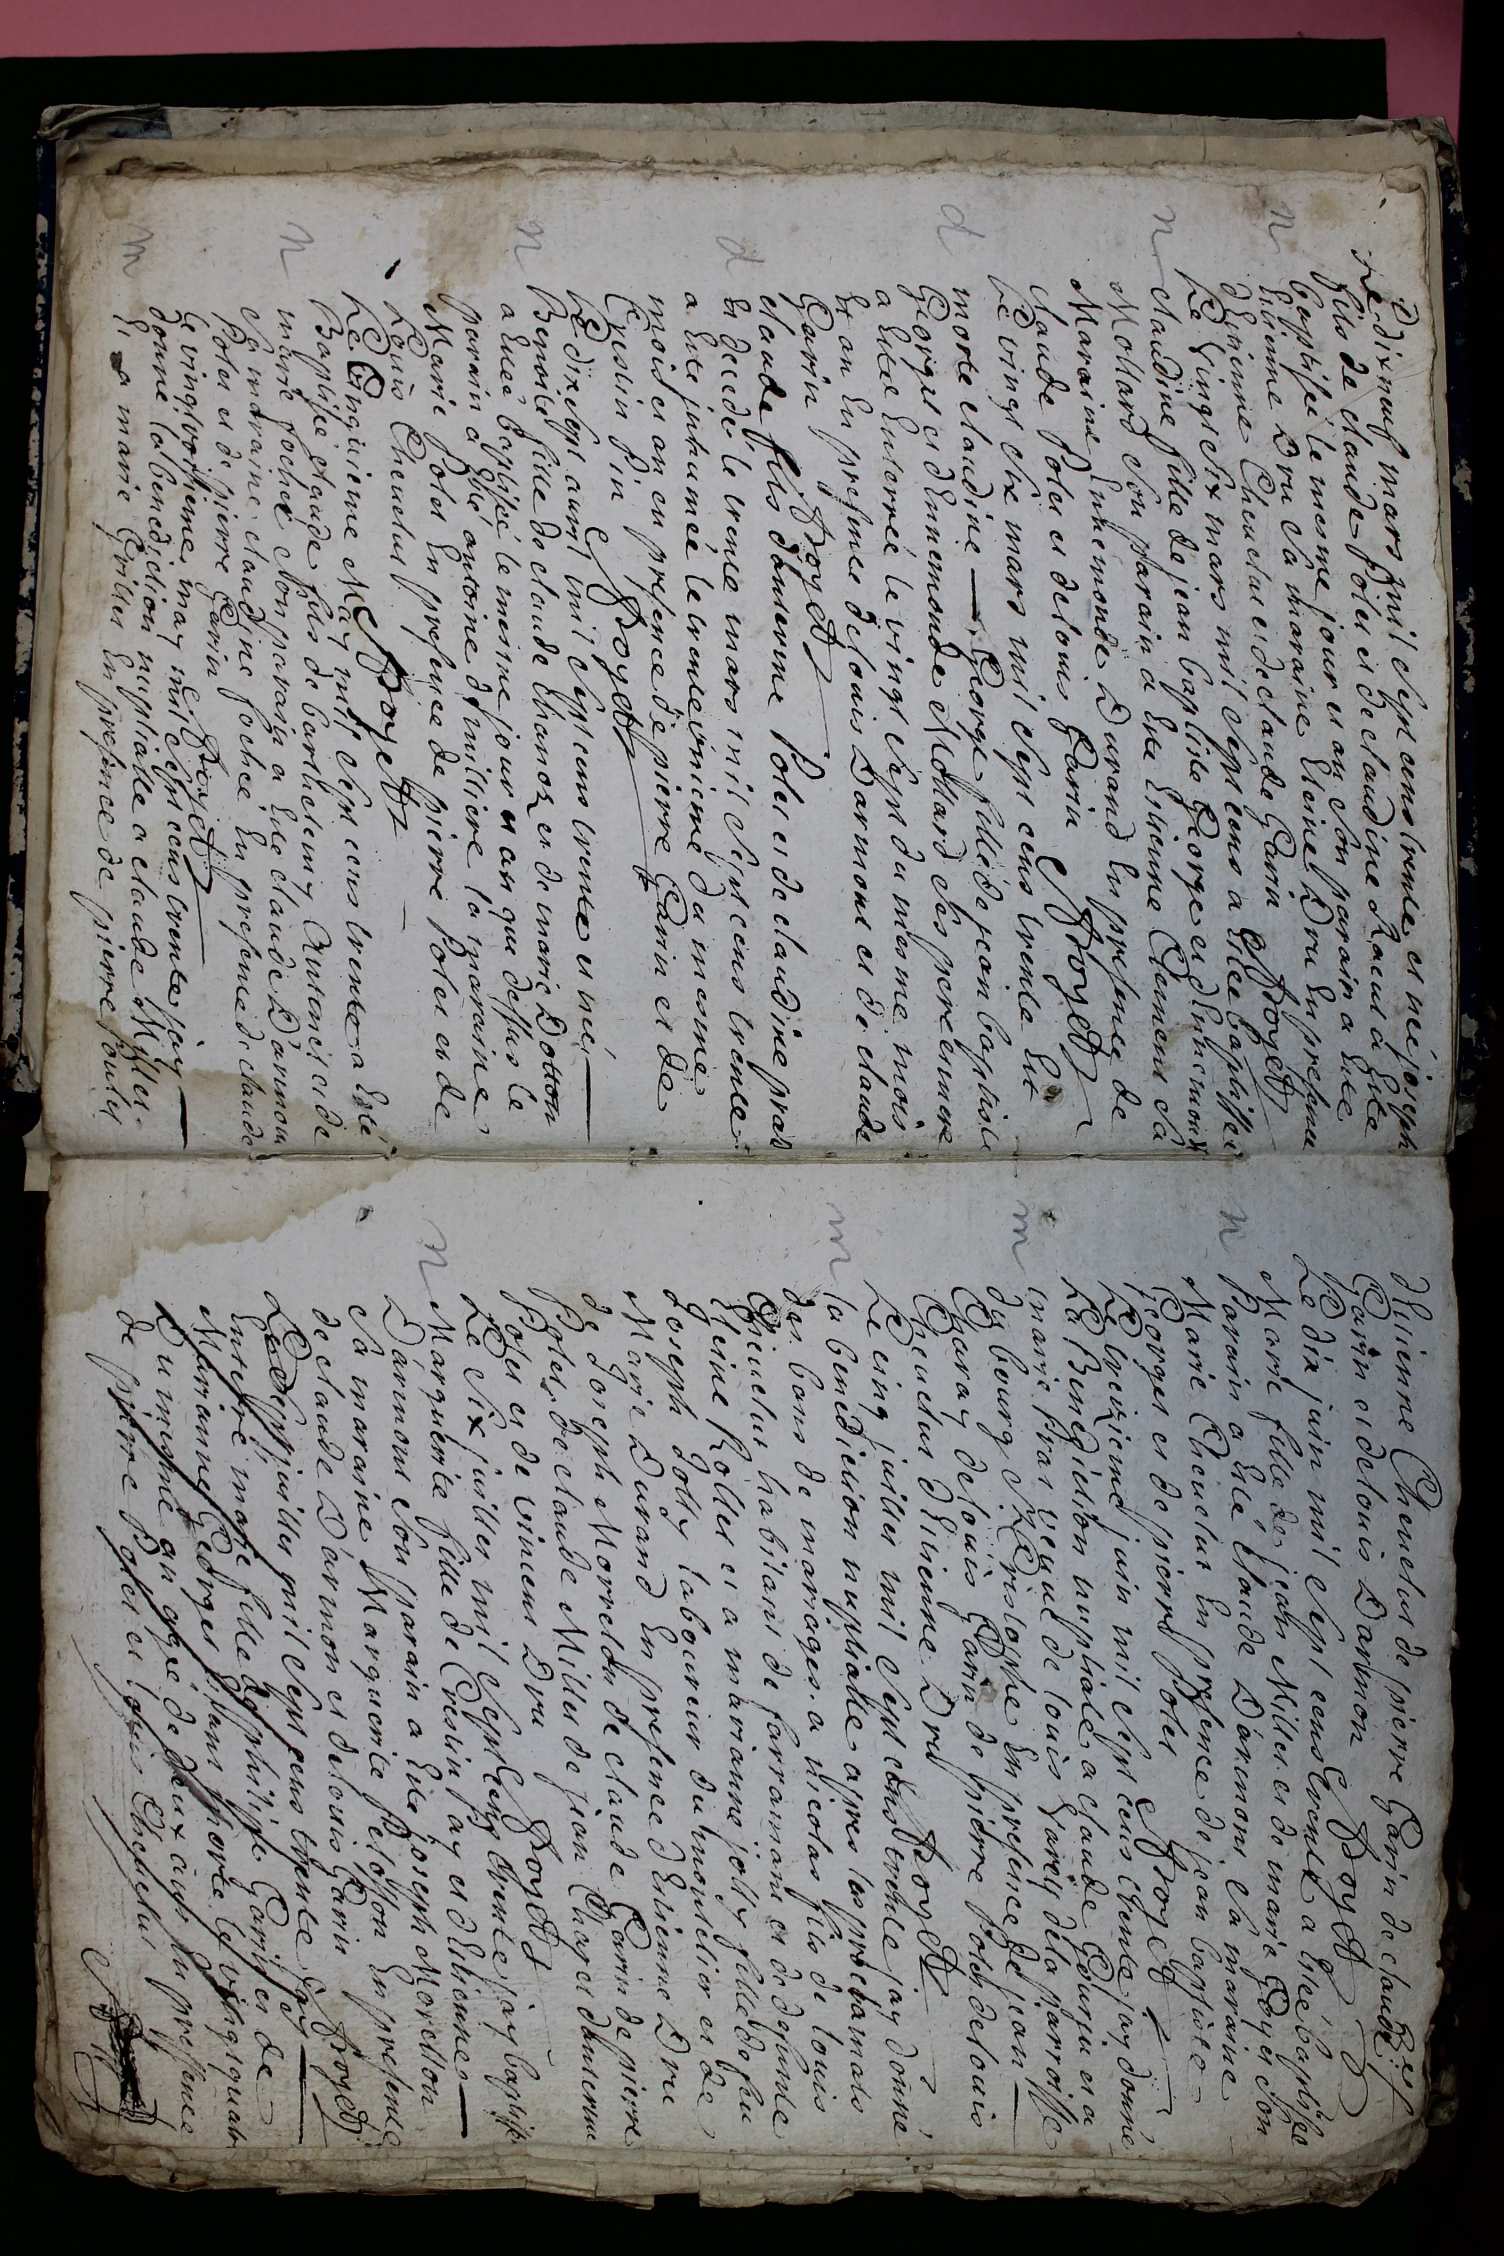 Le dix neuf mars mil sept cens trente est né joseph
fils de claude Polet et de claudine Racut a Esté
baptisée le mesme jour et an son parain a Esté
Etienne Dru sa maraine Eleine Dru En presence
d'Etienne Cheuelut et de claude Garin Royet
n
Le vingt six mars mil sept cens a Esté baptissée
n
claudine fille de jean baptiste George et d'Ennemonde
Mottard son parain a Esté Etienne Clement sa
Maraine Enhemonde Durand En presence de
claude Polet et de louis Garin Royet
Le vingt six mars mil sept cens trente Est
morte claudine George fille de jean baptiste
d
Georges et d'Ennemonde Mottard ses pere et mere
a Estée Enterrée le vingt sept du mesme mois
Et an En presence de louis Darmont et de claude
Garin Royet
claude fils d'anserme Polet et de claudine prat
d
Est decedé le trente mars mil sept cens trente
a Esté jnhumée le trente vnieme du mesme
mois et an en presence de pierre Garin et de
Crestin Pin Royet
Le dix sept auril mil sept cens trente est née
n
Benoite fille de claude Chanoz et de marie Dotton
a Esteé baptisée le mesme jour et an que dessus le
parain a Esté antoine d'juilliere la maraine
Marie Polet En presence de pierre Polet et de
Louis Cheuelut Royet
Le Cinquieme May mil sept cens trente a Esté
Baptisée claude fils de barthelemy Antoniet et de
n
marie fochee son parain a Esté claude D'armon
sa maraine claudine fochée En presence de claude
Polet et de pierre Garin Royet
Le vingt vnzieme may mil sept cens trente jay
donne la benediction nuptialle a claude Millet
m
Et a marie Grillet En presence de pierre Poulet
d'Etienne Cheuelut de pierre Garin de claude
Garin et de louis Darmon Royet
Le dix juin mil sept cens trente a Esteé baptisée
Marie fille de jean Millet et de marie Goy et son
n
Parain a Esté Claude Darmont sa maraine
Marie Cheuelut En presence de jean baptiste
Georges et de pierre Polet Royet
Le treizieme juin mil sept cens trente jay donné
La Benediction nuptiale a claude Gourju et a
m
marie prat veuue de louis Garin de la parroisse
du bourg St Cristophe En presence de jean
Charay de louis Garin de pierre Polet de louis
Cheuelut d'Etienne Dru Royet
Le cinq juillet mil sept cens trente jay donné
m
la benediction nuptialle apres les proclamats
des bans de mariages a nicolas fils de louis
Cheuelut habitant de farramans et de defunte
Eleine Rollet et a marianne jolly fille de feu
Joseph Jolly laboureur du montelier et de
Marie Durand En presence d'Etienne Dru
de Joseph Morrel du de claude Garin de pierre
Polet de claude Millet de jean Chayet d'anserme
Polet et de vincent Dru Royet
Le six juillet mil sept cens trente jay baptisée
n
Marguerite fille de Crestin pay et d'Etienne
Darmont son parain a Esté joseph Moretton
sa maraine Marguerite Peloffon En presence
de claude D'armon et de louis Garin Royet
Le sept juillet mil sept cens trente jay
Enterré marie fille de philippe Garin et de
Marianne Georges Etant morte le vingt quatre
Du mesme an agée de deux ans En presence
de pierre Polet et louis Cheuelut Royet